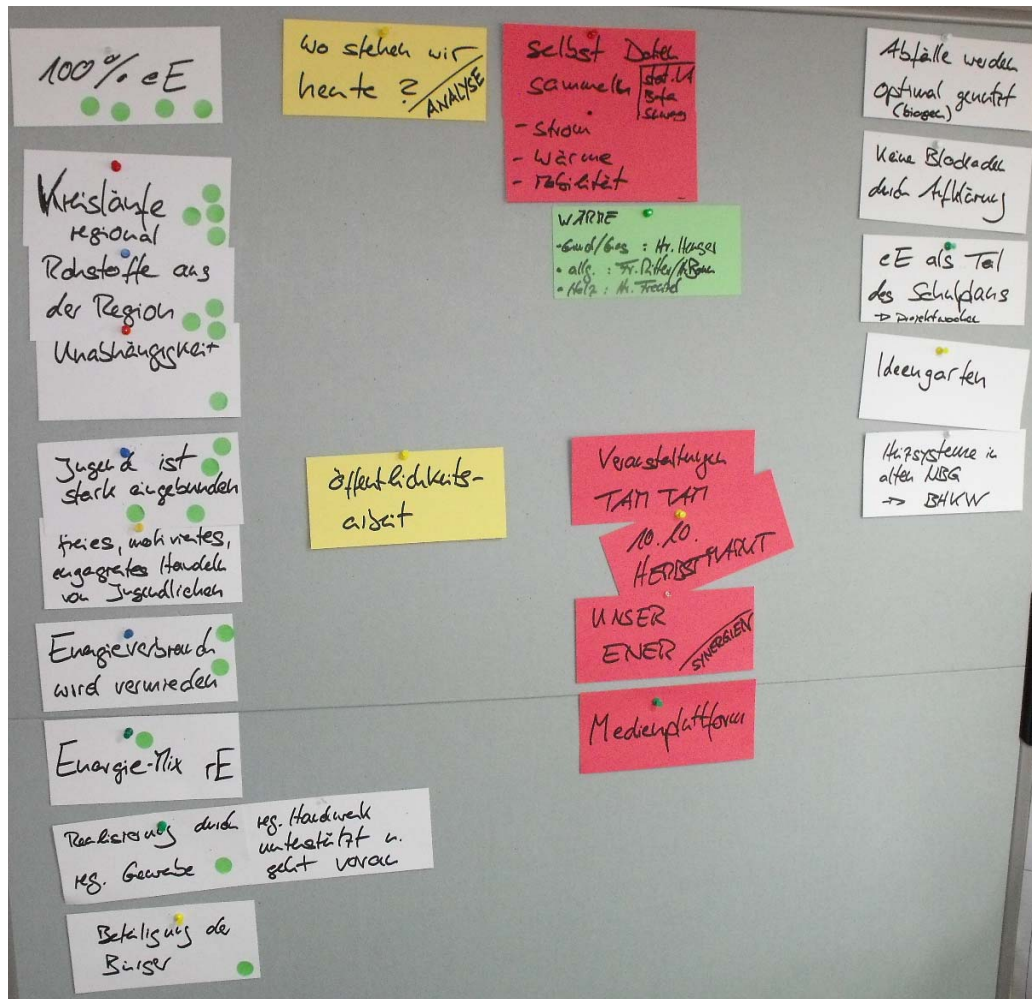 100% eE
Kreisläufe
regional
Rohstoffe aus
der Region
Unabhängigkeit
Jugend ist
stark eingebunden
freies, motiviertes,
engagiertes Handeln
von Jugendlichen
Energieverbrauch
wird vermieden
Energie-Mix rE
Realisierung durch
reg. Gewerbe
reg. Handwerk
unterstützt u.
geht voran
Beteiligung der
Bürger
Wo stehen wir
heute?
ANALYSE
Öffentlichkeits-
arbeit
selbst Daten
sammeln
stat. LA
- Strom
- Wärme
- Mobilität
WÄRME
: Hr.
• allg. : Fr. Ritter/
• Holz : Hr.
Veranstaltungen
TAM TAM
10.10.
HERBSTMARKT
UNSER
ENER
SYNERGIEN
Medienplattform
Abfälle werden
optimal genutzt
(biogen)
Keine Blockaden
durch Aufklärung
eE als Teil
des Schulplans
→ Projektwochen
Ideengarten
Heizsysteme in
alten NBG
→ BHKW